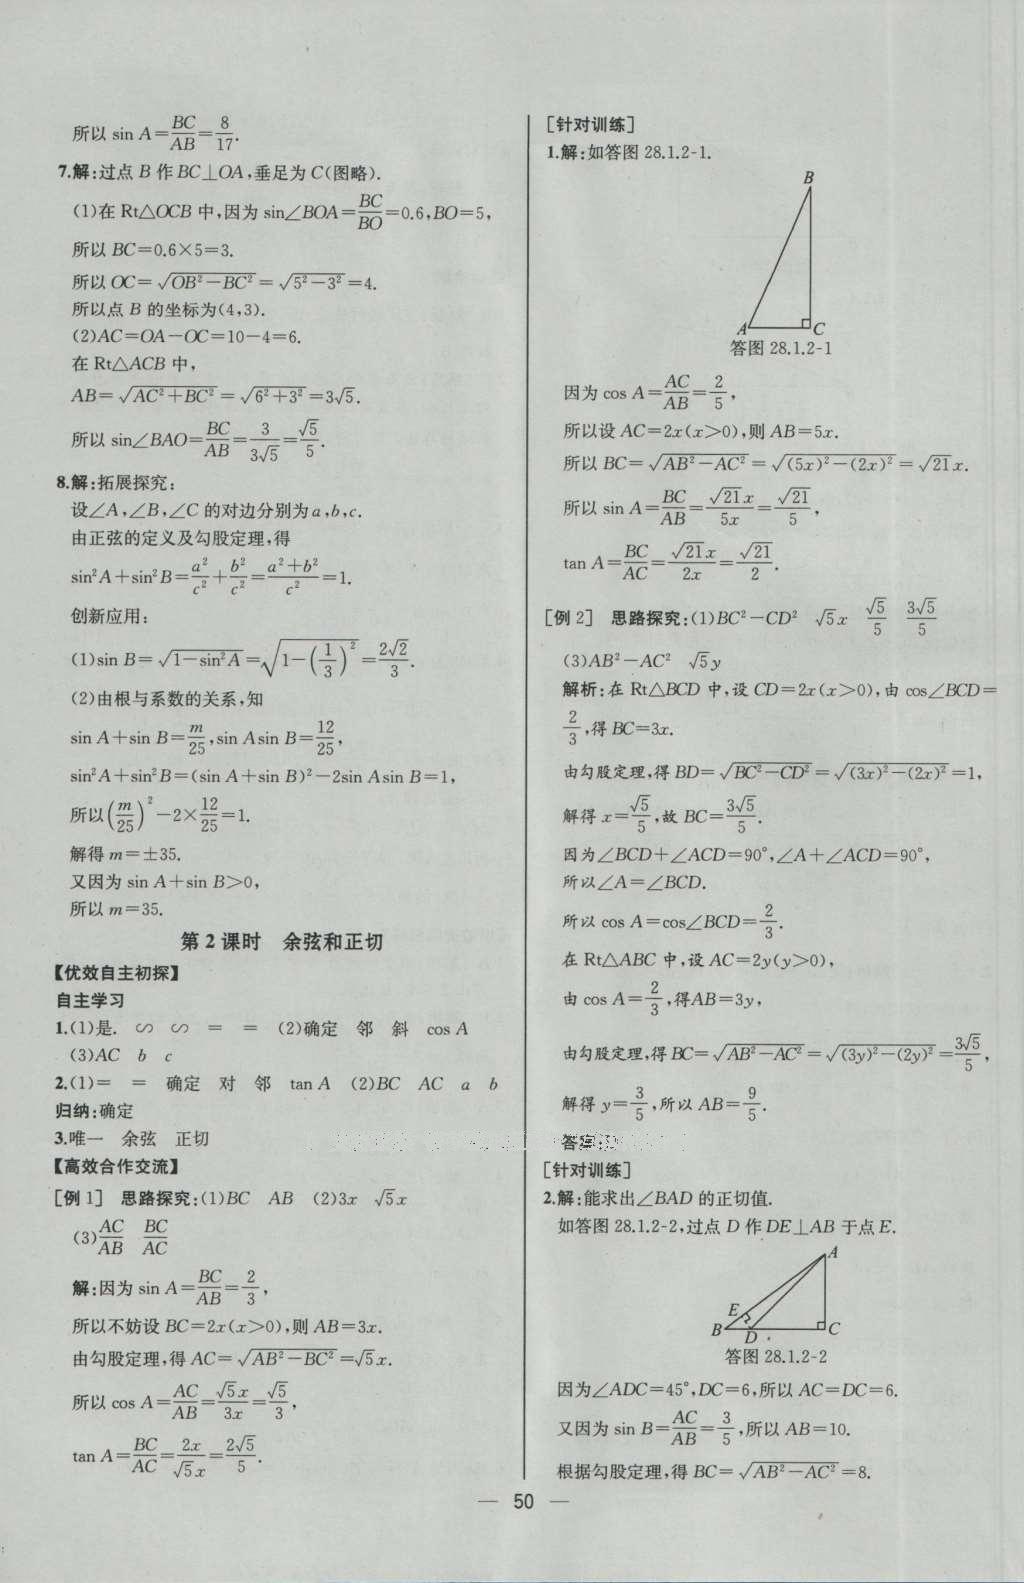 所以 sin A=BC/AB=8/17.
7.解:过点 B 作 BC⊥OA,垂足为 C(图略).
(1)在 Rt△OCB 中,因为 sin∠BOA=BC/BO=0.6,BO=5,
所以 BC=0.6×5=3.
所以 OC=√(OB²-BC²)=√(5²-3²)=4.
所以点 B 的坐标为(4,3).
(2)AC=OA-OC=10-4=6.
在 Rt△ACB 中,
AB=√(AC²+BC²)=√(6²+3²)=3√5.
所以 sin∠BAO=BC/AB=3/(3√5)=√5/5.
8.解:拓展探究:
设∠A,∠B,∠C 的对边分别为 a,b,c.
由正弦的定义及勾股定理,得
sin²A+sin²B=a²/c²+b²/c²=(a²+b²)/c²=1.
创新应用:
(1)sin B=√(1-sin²A)=√(1-(1/3)²)=2√2/3.
(2)由根与系数的关系,知
sin A+sin B=m/25,sin Asin B=12/25,
sin²A+sin²B=(sin A+sin B)²-2sin Asin B=1,
所以(m/25)²-2×12/25=1.
解得 m=±35.
又因为 sin A+sin B>0,
所以 m=35.
第 2 课时 余弦和正切
【优效自主初探】
自主学习
1.(1)是. ∽ ∽ = = (2)确定 邻 斜 cos A
(3)AC b c
2.(1)= = 确定 对 邻 tan A (2)BC AC a b
归纳:确定
3.唯一 余弦 正切
【高效合作交流】
[例 1] 思路探究:(1)BC AB (2)3x √5x
(3)AC/AB BC/AC
解:因为 sin A=BC/AB=2/3,
所以不妨设 BC=2x(x>0),则 AB=3x.
由勾股定理,得 AC=√(AB²-BC²)=√5x.
所以 cos A=AC/AB=√5x/3x=√5/3,
tan A=BC/AC=2x/√5x=2√5/5.
[针对训练]
1.解:如答图 28.1.2-1.
B
A
C
答图 28.1.2-1
因为 cos A=AC/AB=2/5,
所以设 AC=2x(x>0),则 AB=5x.
所以 BC=√(AB²-AC²)=√((5x)²-(2x)²)=√21x.
所以 sin A=BC/AB=√21x/5x=√21/5,
tan A=BC/AC=√21x/2x=√21/2.
[例 2] 思路探究:(1)BC²-CD² √5x √5/5 3√5/5
(3)AB²-AC² √5y
解析:在 Rt△BCD 中,设 CD=2x(x>0),由 cos∠BCD=
2/3,得 BC=3x.
由勾股定理,得 BD=√(BC²-CD²)=√((3x)²-(2x)²)=1,
解得 x=√5/5,故 BC=3√5/5.
因为∠BCD+∠ACD=90°,∠A+∠ACD=90°,
所以∠A=∠BCD.
所以 cos A=cos∠BCD=2/3.
在 Rt△ABC 中,设 AC=2y(y>0),
由 cos A=2/3,得AB=3y,
由勾股定理,得 BC=√(AB²-AC²)=√((3y)²-(2y)²)=3√5/5,
解得 y=3/5,所以 AB=9/5.
答案:
[针对训练]
2.解:能求出∠BAD 的正切值.
如答图 28.1.2-2,过点 D 作 DE⊥AB 于点 E.
A
E
B
D
C
答图 28.1.2-2
因为∠ADC=45°,DC=6,所以 AC=DC=6.
又因为 sin B=AC/AB=3/5,所以 AB=10.
根据勾股定理,得 BC=√(AB²-AC²)=8.
— 50 —